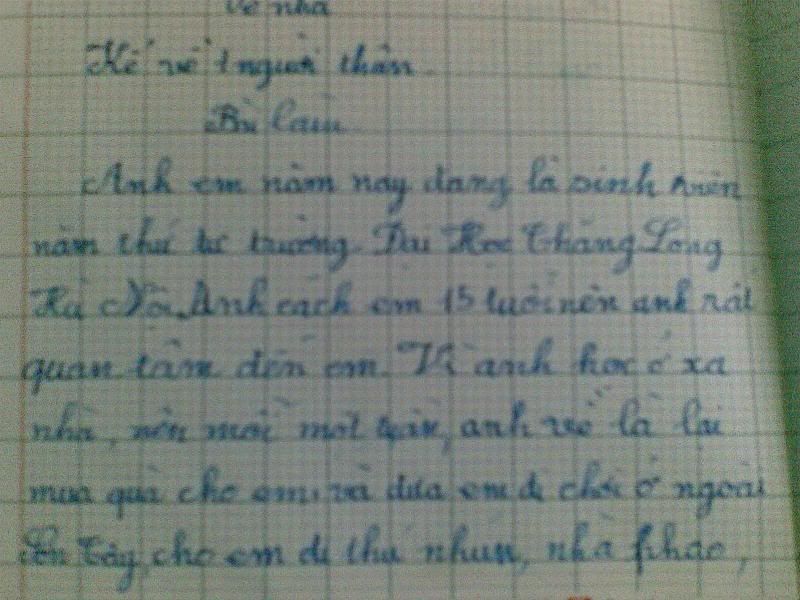 về nhà
Kể về 1 người thân
Bài làm
Anh em năm nay đang là sinh viên
năm thứ tư trường Đại Học Thăng Long
Hà Nội. Anh cách em 15 tuổi nên anh rất
quan tâm đến em. Vì anh học ở xa
nhà, nên mỗi một tuần, anh về là lại
mua quà cho em, và đưa em đi chơi ở ngoài
Sơn Tây, cho em đi thú nhún, nhà phao,